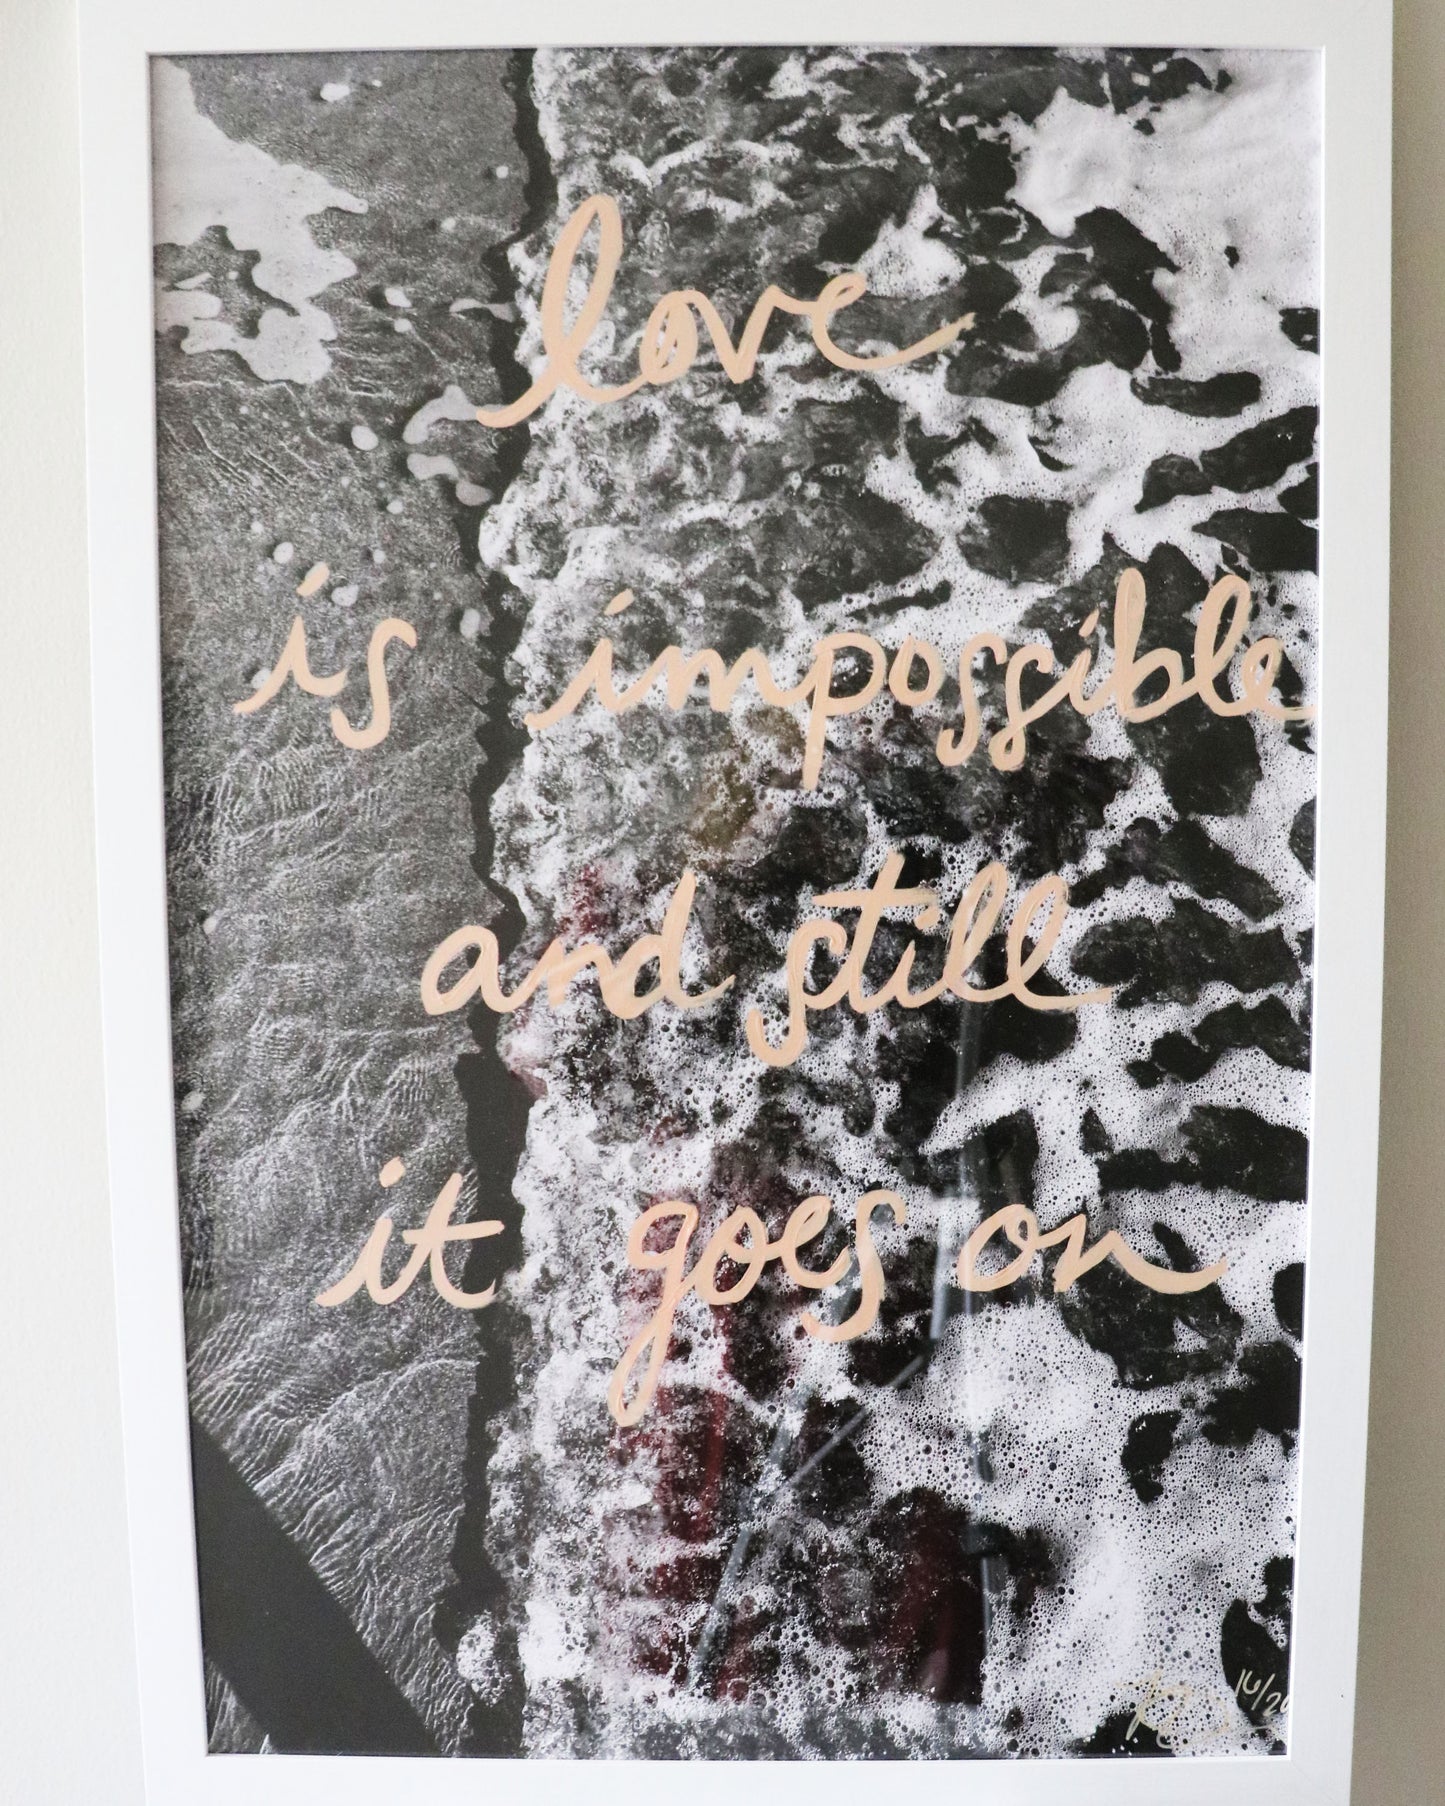 love
is impossible
and still
it goes on
16/20